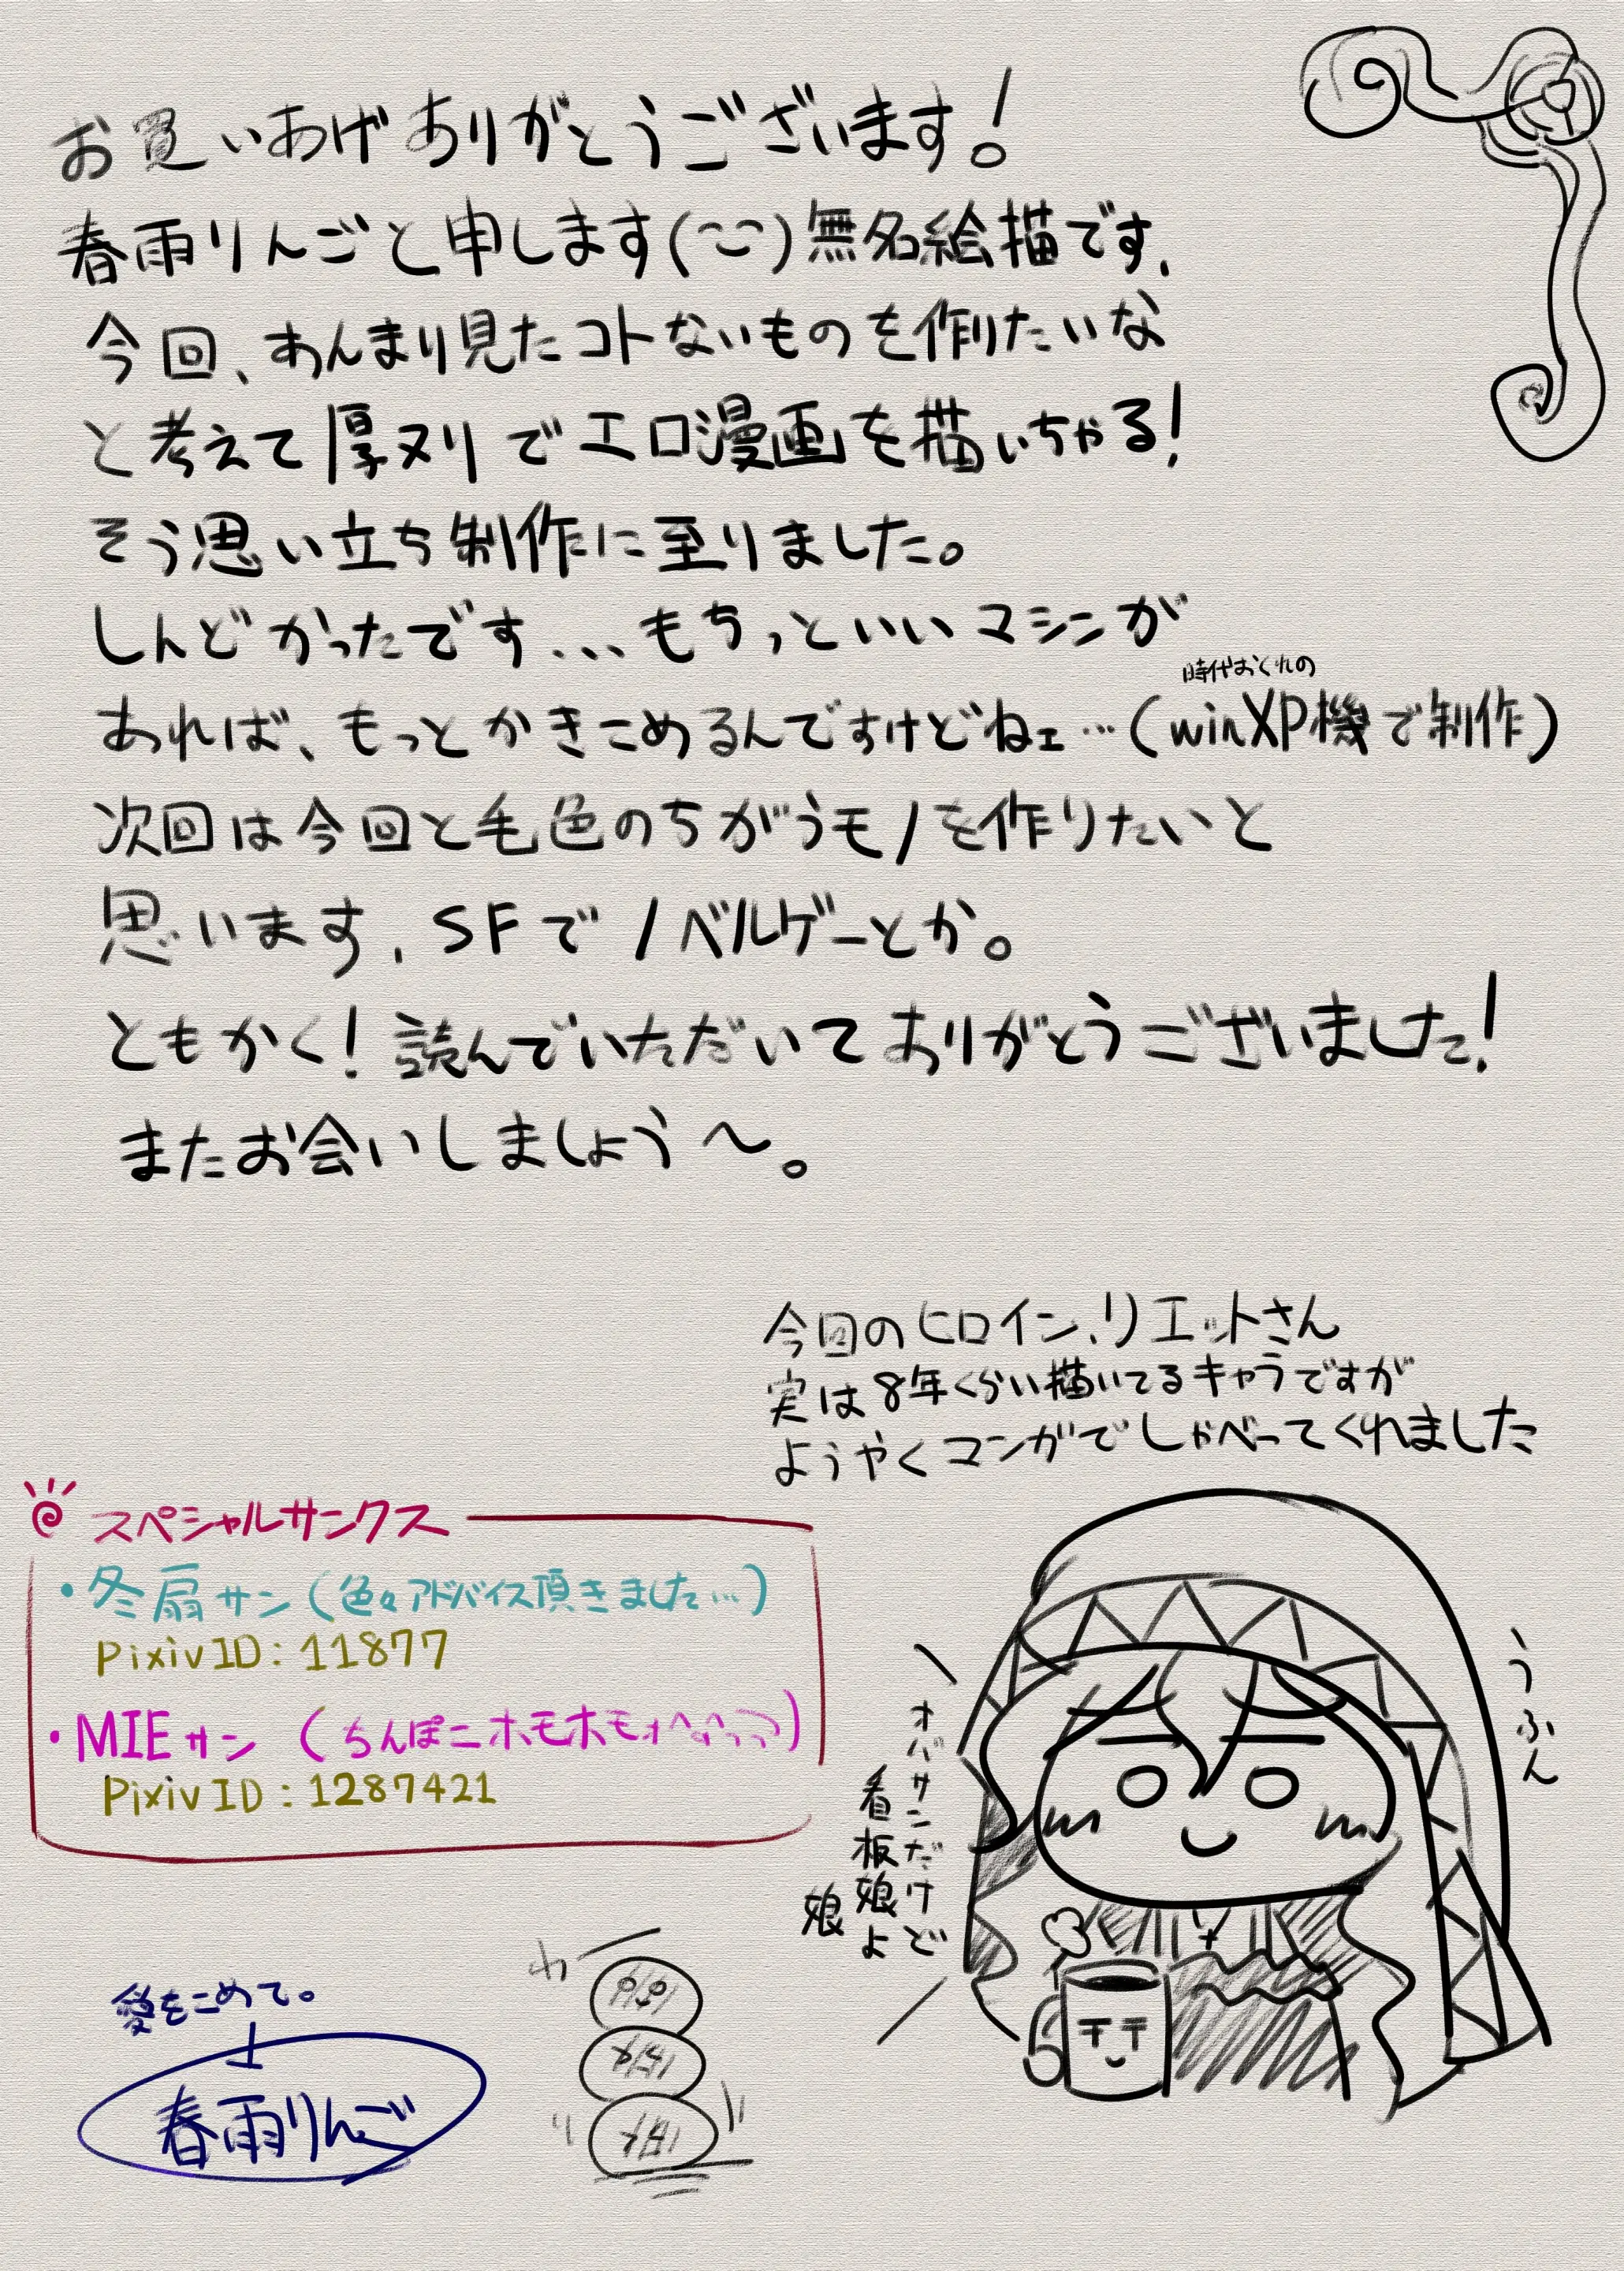 お買いあげありがとうございます!
春雨りんごと申します(^-^)無名絵描です、
今回、あんまり見たコトないものを作りたいな
と考えて厚ヌリでエロ漫画を描いちゃる!
そう思い立ち制作に至りました。
しんどかったです...もちっといいマシンが
時代おくれの
あれば、もっとかきこめるんですけどねェ…(winXP機で制作)
次回は今回と毛色のちがうモノを作りたいと
思います、SFでノベルゲーとか。
ともかく!読んでいただいてありがとうございました!
またお会いしましょう〜。
今回のヒロイン、リエットさん
実は8年くらい描いてるキャラですが
ようやくマンガでしゃべってくれました
スペシャルサンクス
・冬扇サン(色々アドバイス頂きました…)
PixivID:11877
・MIEサン(ちんぽニホモホモ
PixivID:1287421
うふん
オバサンだけど
看板娘よ
娘
愛をこめて。
春雨りんご